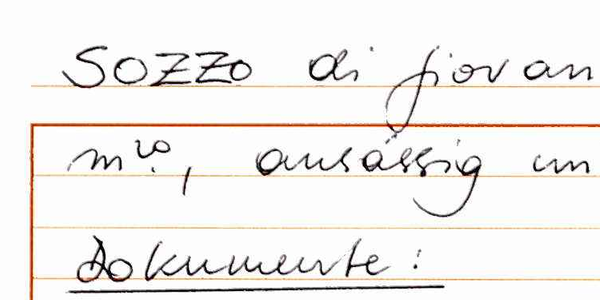 Sozzo di giovan
m^ro, ansässig im
Dokumente: